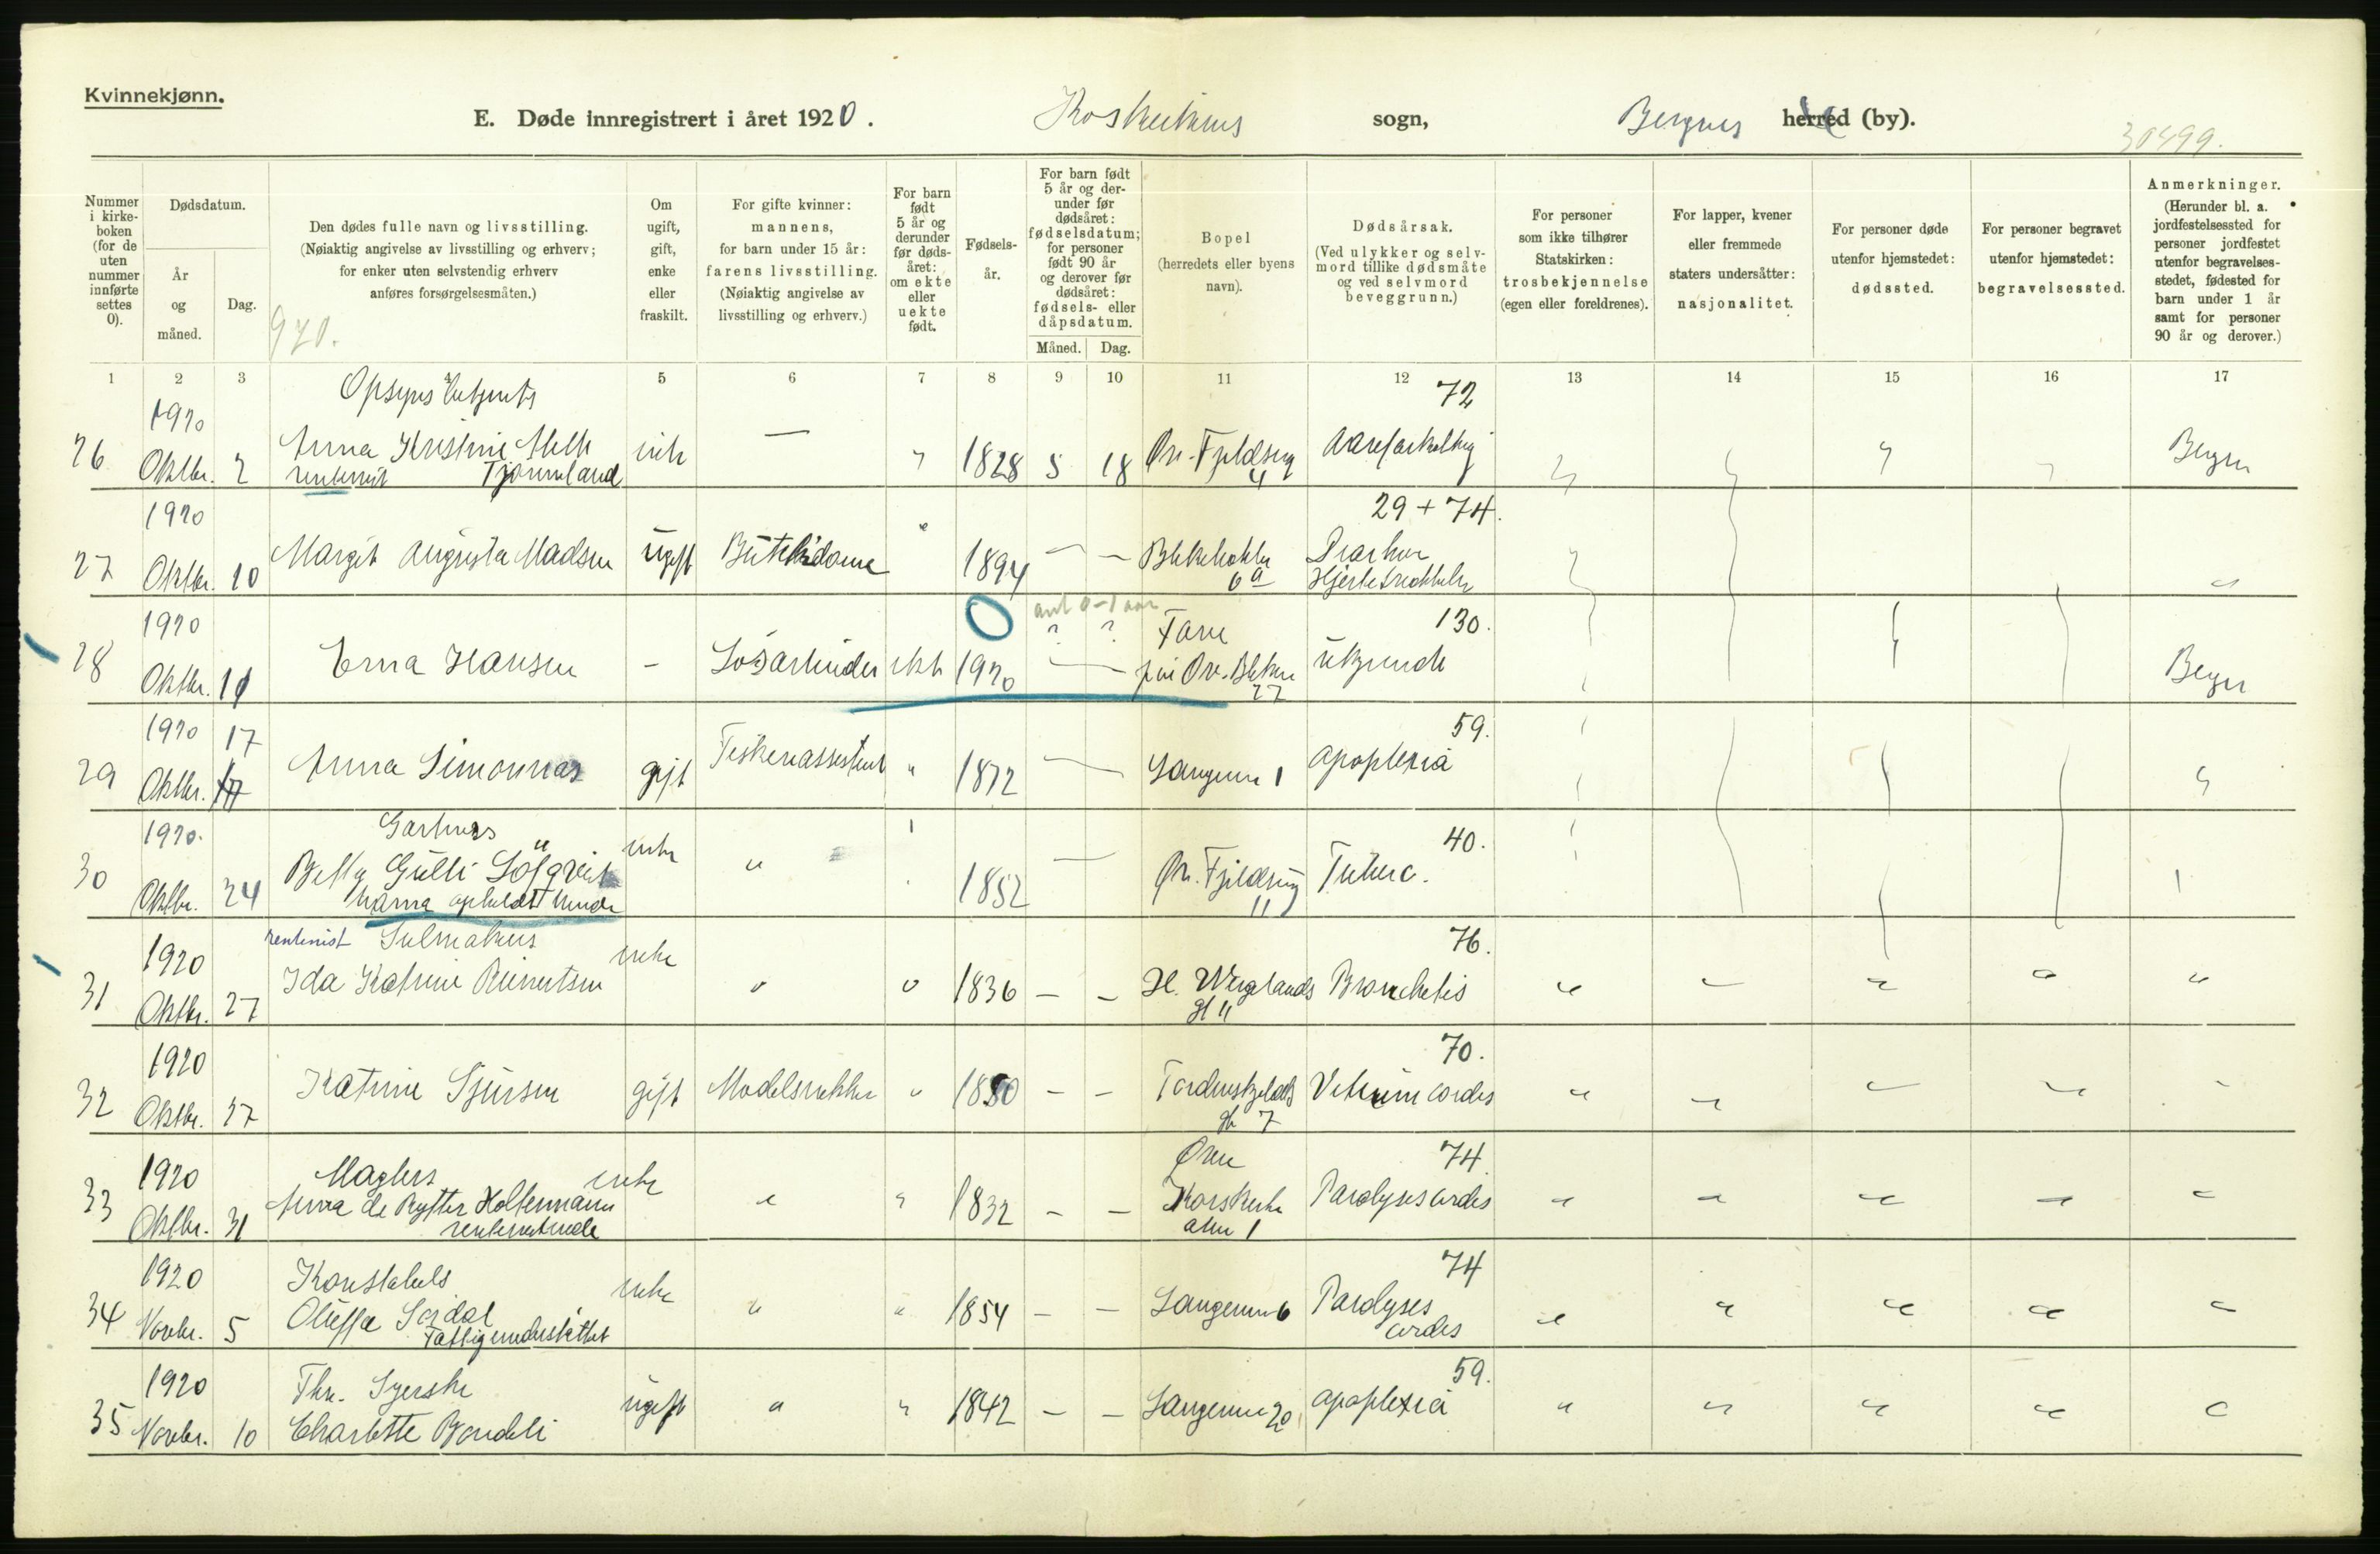 Kvinnekjønn.
E. Døde innregistrert i året 1920. sogn, Bergens herred (by).
30499.
Nummer i kirkeboken (for de uten nummer innførte settes 0).
Dødsdatum.
År og måned.
Dag.
Den dødes fulle navn og livsstilling.
(Nøiaktig angivelse av livsstilling og erhverv; for enker uten selvstendig erhverv anføres forsørgelsesmåten.)
970.
Om ugift, gift, enke eller fraskilt.
For gifte kvinner: mannens, for barn under 15 år: farens livsstilling. (Nøiaktig angivelse av livsstilling og erhverv.)
For barn født 5 år og derunder før dødsåret: om ekte eller uekte født.
Fødselsår.
For barn født 5 år og derunder før dødsåret: fødselsdatum; for personer født 90 år og derover før dødsåret: fødsels- eller dåpsdatum.
Måned. Dag.
Bopel (herredets eller byens navn).
Dødsårsak. (Ved ulykker og selvmord tillike dødsmåte og ved selvmord beveggrunn.)
For personer som ikke tilhører Statskirken: trosbekjennelse (egen eller foreldrenes).
For lapper, kvener eller fremmede staters undersåtter: nasjonalitet.
For personer døde utenfor hjemstedet: dødssted.
For personer begravet utenfor hjemstedet: begravelsessted.
Anmerkninger. (Herunder bl. a. jordfestelsessted for personer jordfestet utenfor begravelsesstedet, fødested for barn under 1 år samt for personer 90 år og derover.)
1 2 3 5 6 7 8 9 10 11 12 13 14 15 16 17
72
1920
26 Oktbr. 2 Anna Kristine enke — " 1828 5 18 Øv. Fjeldsmug Aareforkalkning Bergen
rentenist Tjømeland 4
1920 29 + 74.
27 Oktbr. 10 Margit Augusta Madsen ugift Butikdame " 1894 — — Blekebakken Diarhoe
6 a Hjertesvækkelse
1920 0 ant 0-1 aar ? ? Fane 130.
28 Oktbr. 11 Erna Hansen - Løsarbeider ekte 1920 — — Øv. Bleken ukjendt Bergen
27
1920 17 59.
29 Oktbr. Anna gift " 1872 — Langeveien 1 Apoplexia "
1920. Gartners enke 40.
30 Oktbr. 24 Betty Gulli Löfqvist " 1852 — Øv. Fjeldsmug Tuberc.
11
rentenist enke 76.
1920
31 Oktbr. 27 Ida Katrine Reinertsen " " 1836 — — H. Wergelands Bronchitis " " " " "
gt 11
1920 70.
32 Oktbr. 27 Katrine Sjursen gift Modelsnekker " 1880 — — Tordenskjolds Vitium cordis " " " " "
gt 7
1920 Maglers enke Øvre 74.
33 Oktbr. 31 Anna de Rytter Holtermann " " 1832 — — Korskirke Paralyses cordis " " " " "
alm 1
1920 Konstabels enke 74
34 Novbr. 5 Oluffa " " 1854 — — Langeveien 6 Paralyses " " " " "
Fattigunderstøttet cordis
1920 Fhv. Syerske 59.
35 Novbr. 10 Charlotte Bondeli ugift " " 1842 — — Langeveien 20 Apoplexia " " " " "